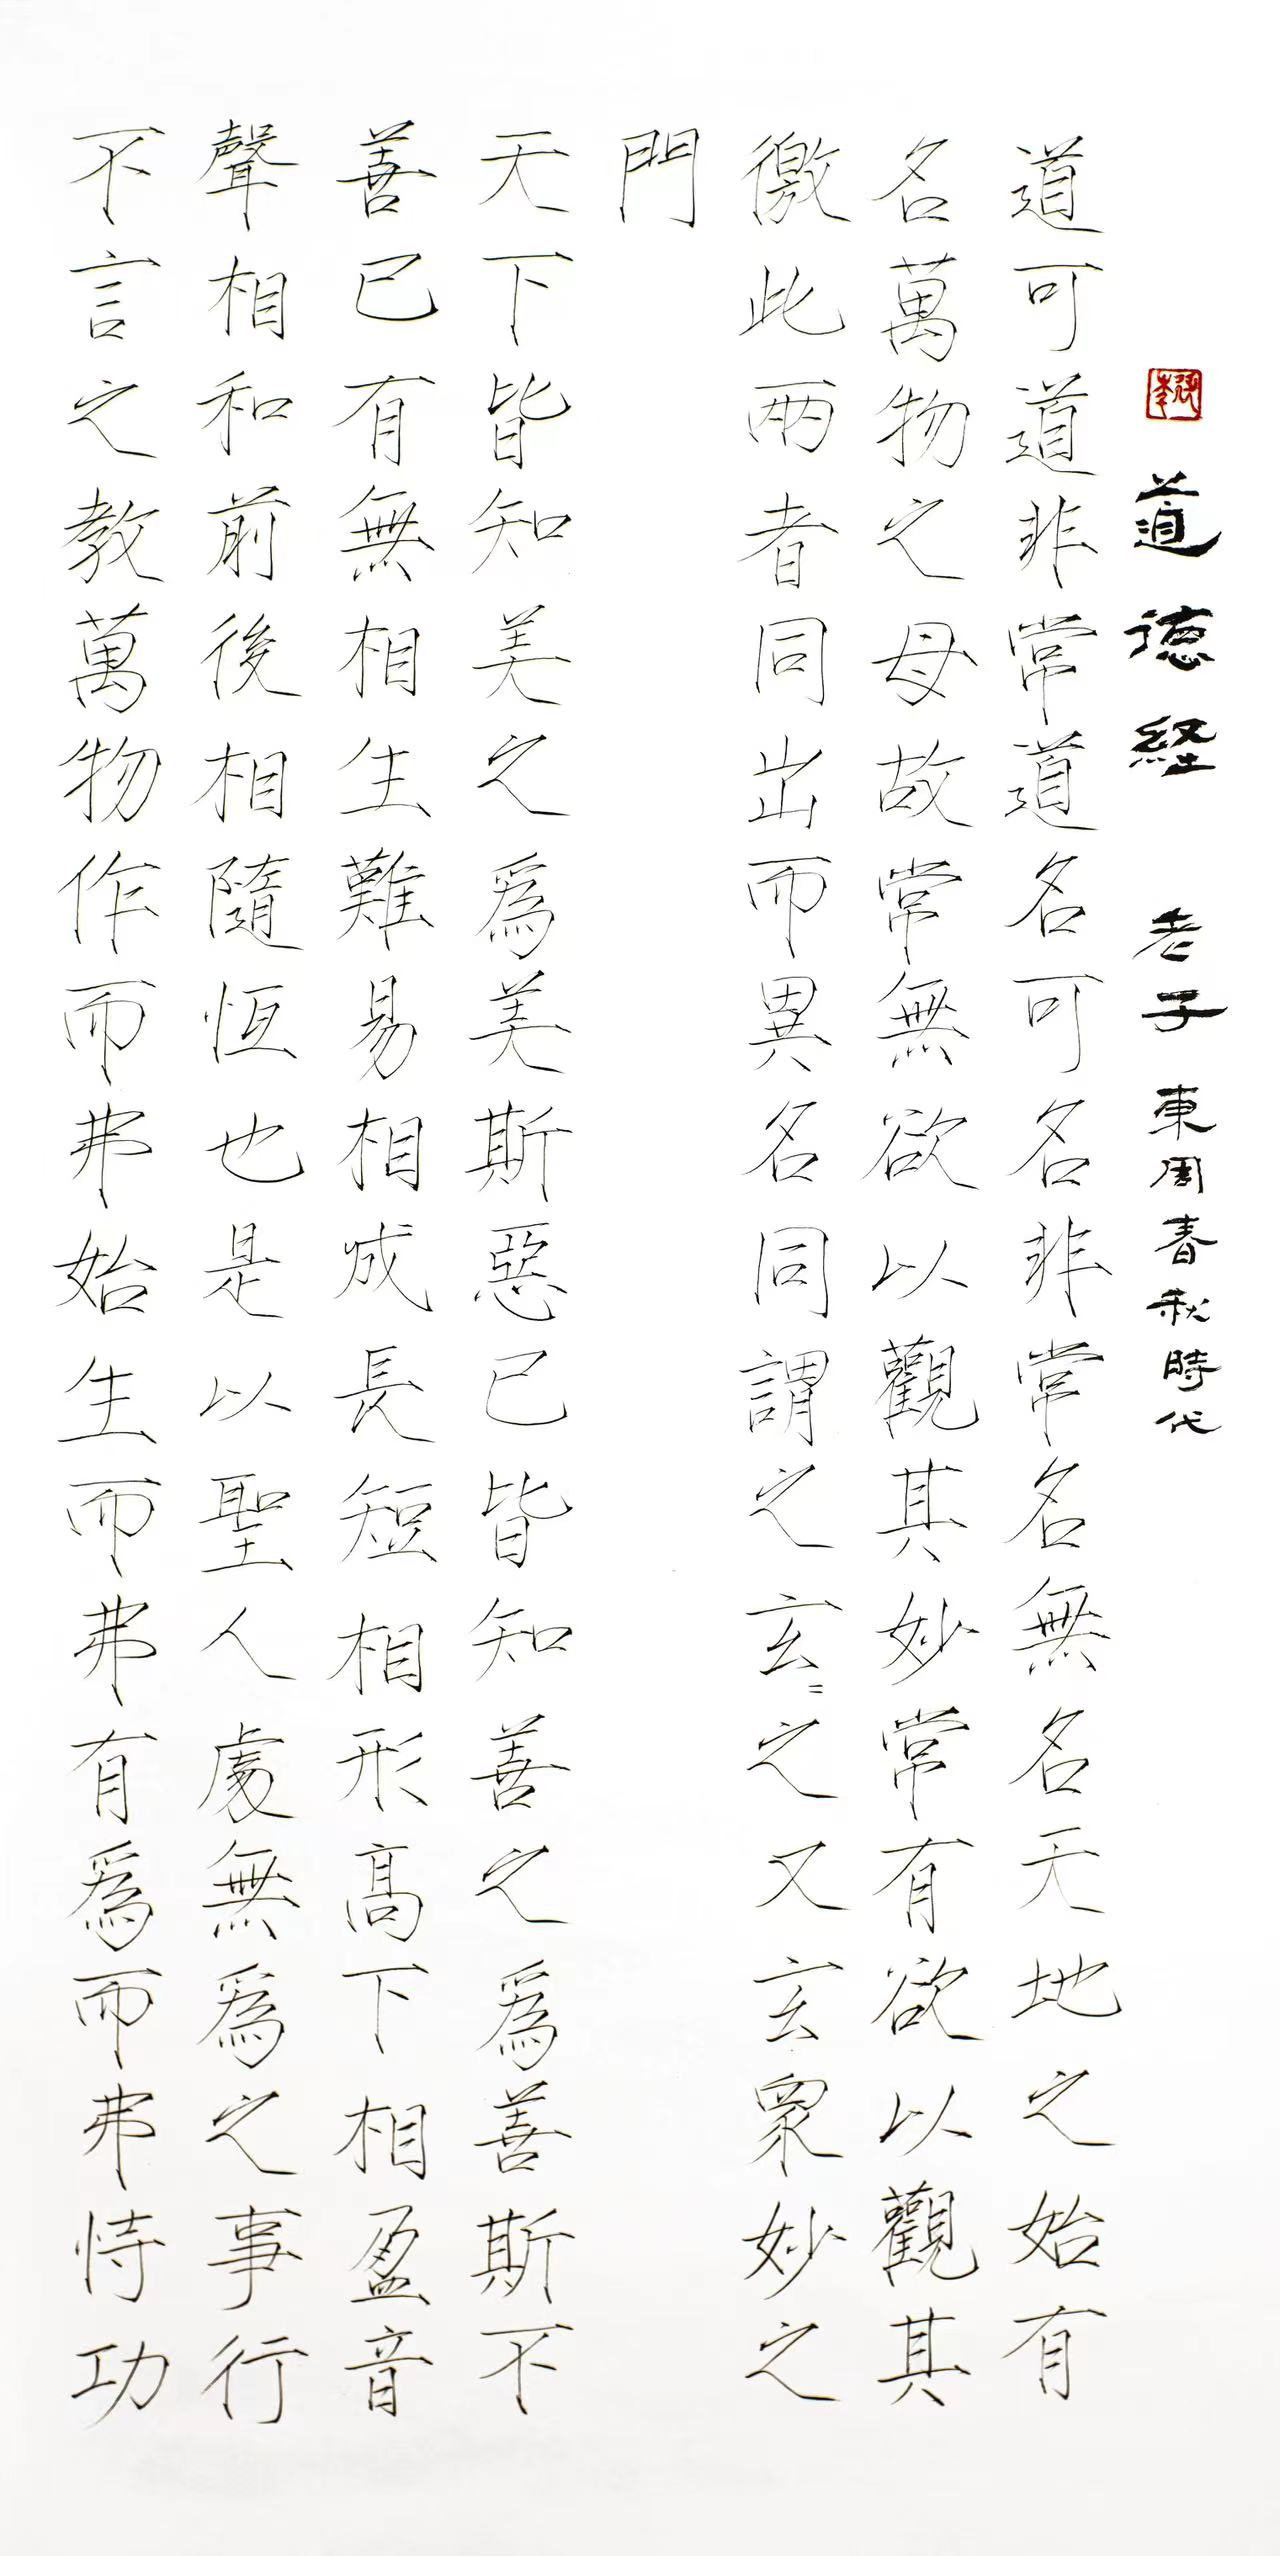 道德経 老子 東周春秋時代
道可道非常道名可名非常名無名天地之始有
名萬物之母故常無欲以觀其妙常有欲以觀其
徼此兩者同出而異名同謂之玄〻之又玄衆妙之
門
天下皆知美之爲美斯惡已皆知善之爲善斯不
善已有無相生難易相成長短相形高下相盈音
聲相和前後相隨恆也是以聖人處無爲之事行
不言之教萬物作而弗始生而弗有爲而弗恃功